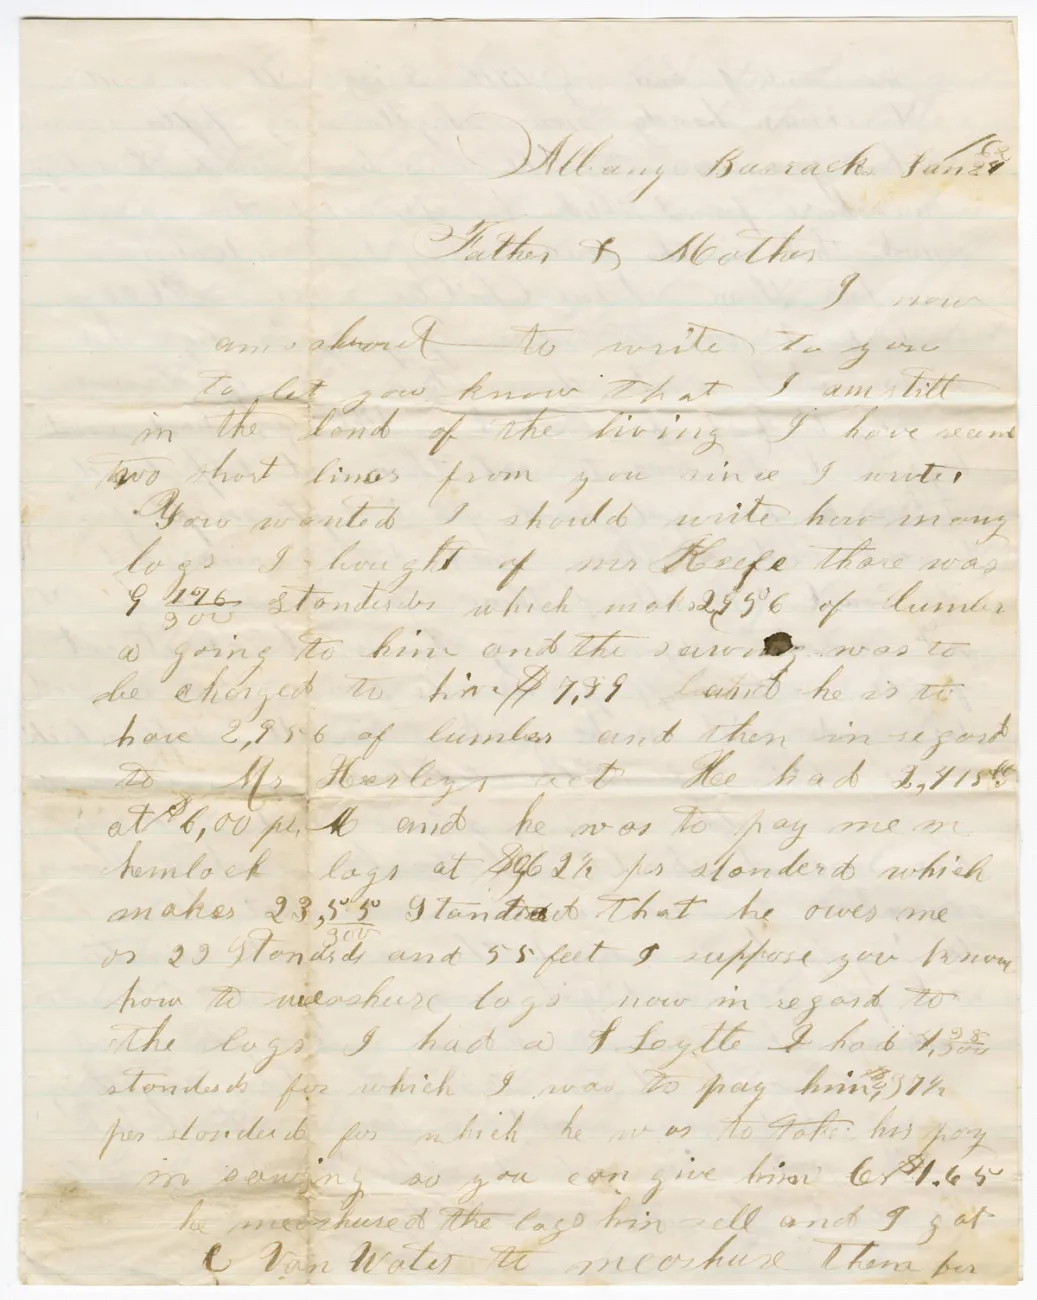 Albany Barracks Jan 24
Father & Mother
I now
am about to write to you
to let you know that I am still
in the land of the living I have
two short lines from you since I write.
You wanted I should write how many
logs I bought of mr Keefe thare was
9 196/300 standerds which makes 2,956 of lumber
a going to him and the sawing was to
be charged to him $7,39 and he is to
have 2,956 of lumber and then in regard
to Mr Herleys act He had 2,415
at $6,00 pr M and he was to pay me in
hemlock logs at 62½ pr standerd which
makes 23,55/300 Standerd that he owes me
or 23 Standerds and 55 feet I suppose you know
how to meashure logs now in regard to
the logs I had a I had 4,
standerds for which I was to pay him 37½
per standerd for which he was to take his pay
in sawing so you can give him Cr $1.65
he meashured the logs him sell and I got
C Van Water to meashure them for